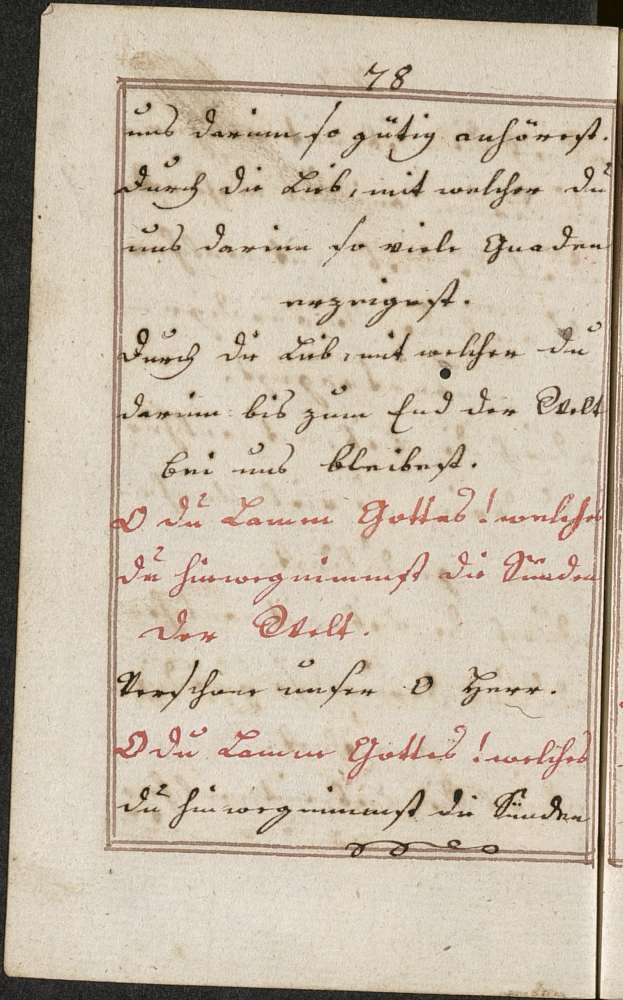 78
uns darinn so gütig anhörest.
Durch die Lieb, mit welcher du
uns darinn so viele Gnaden
erzeigest.
Durch die Lieb, mit welcher du
darinn bis zum End der Welt
bei uns bleibest.
O du Lamm Gottes! welches
du hinwegnimmst die Sünden
der Welt.
Verschone unser O Herr.
O du Lamm Gottes! welches
du hinwegnimmst die Sünden